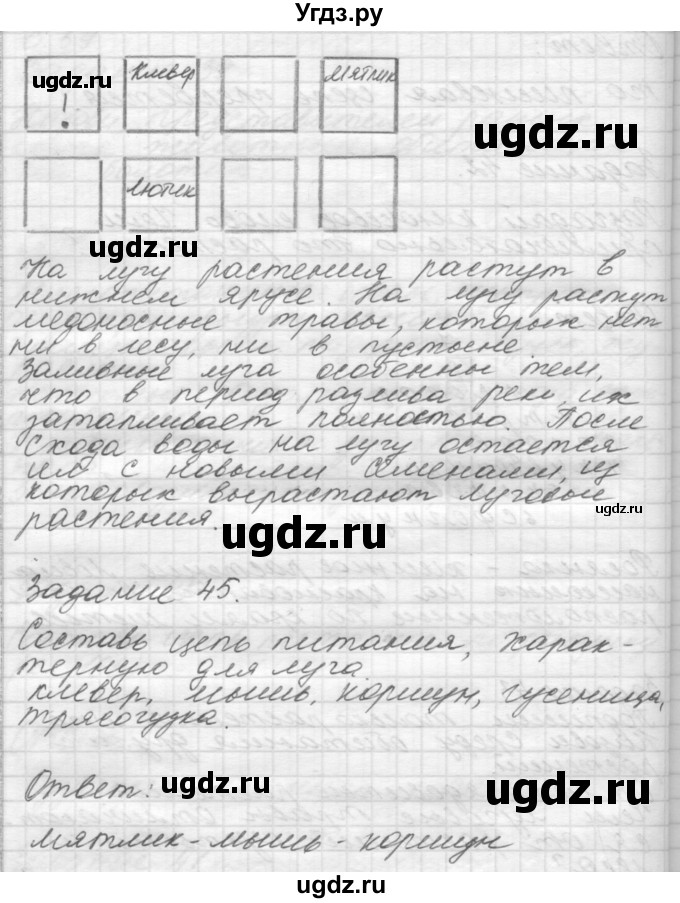 Угдз.ру
Клевер Мятлик
ugdz.ru
!
ugdz.ru
Лютик
ugdz.ru
На лугу растения растут в
нижнем ярусе. На лугу растут
медоносные травы, которых нет
ни в лесу, ни в пустыне.
Заливные луга особенны тем,
что в период разлива реки их
затапливает полностью. После
схода воды на лугу остается
ил с новыми семенами, из
которых вырастают луговые
ugdz.ru
растения.
ugdz.ru
Задание 45.
Составь цепь питания, харак-
терную для луга.
ugdz.ru
клевер, мышь, коршун, гусеница,
трясогузка.
Ответ:
ugdz.ru
ugdz.ru
мятлик-мышь-коршун
ugdz.ru